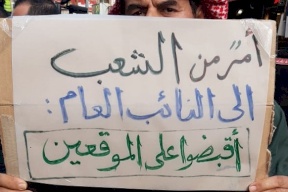 أمر من الشعب
الى النائب العام :
أقبضوا على الموقعين